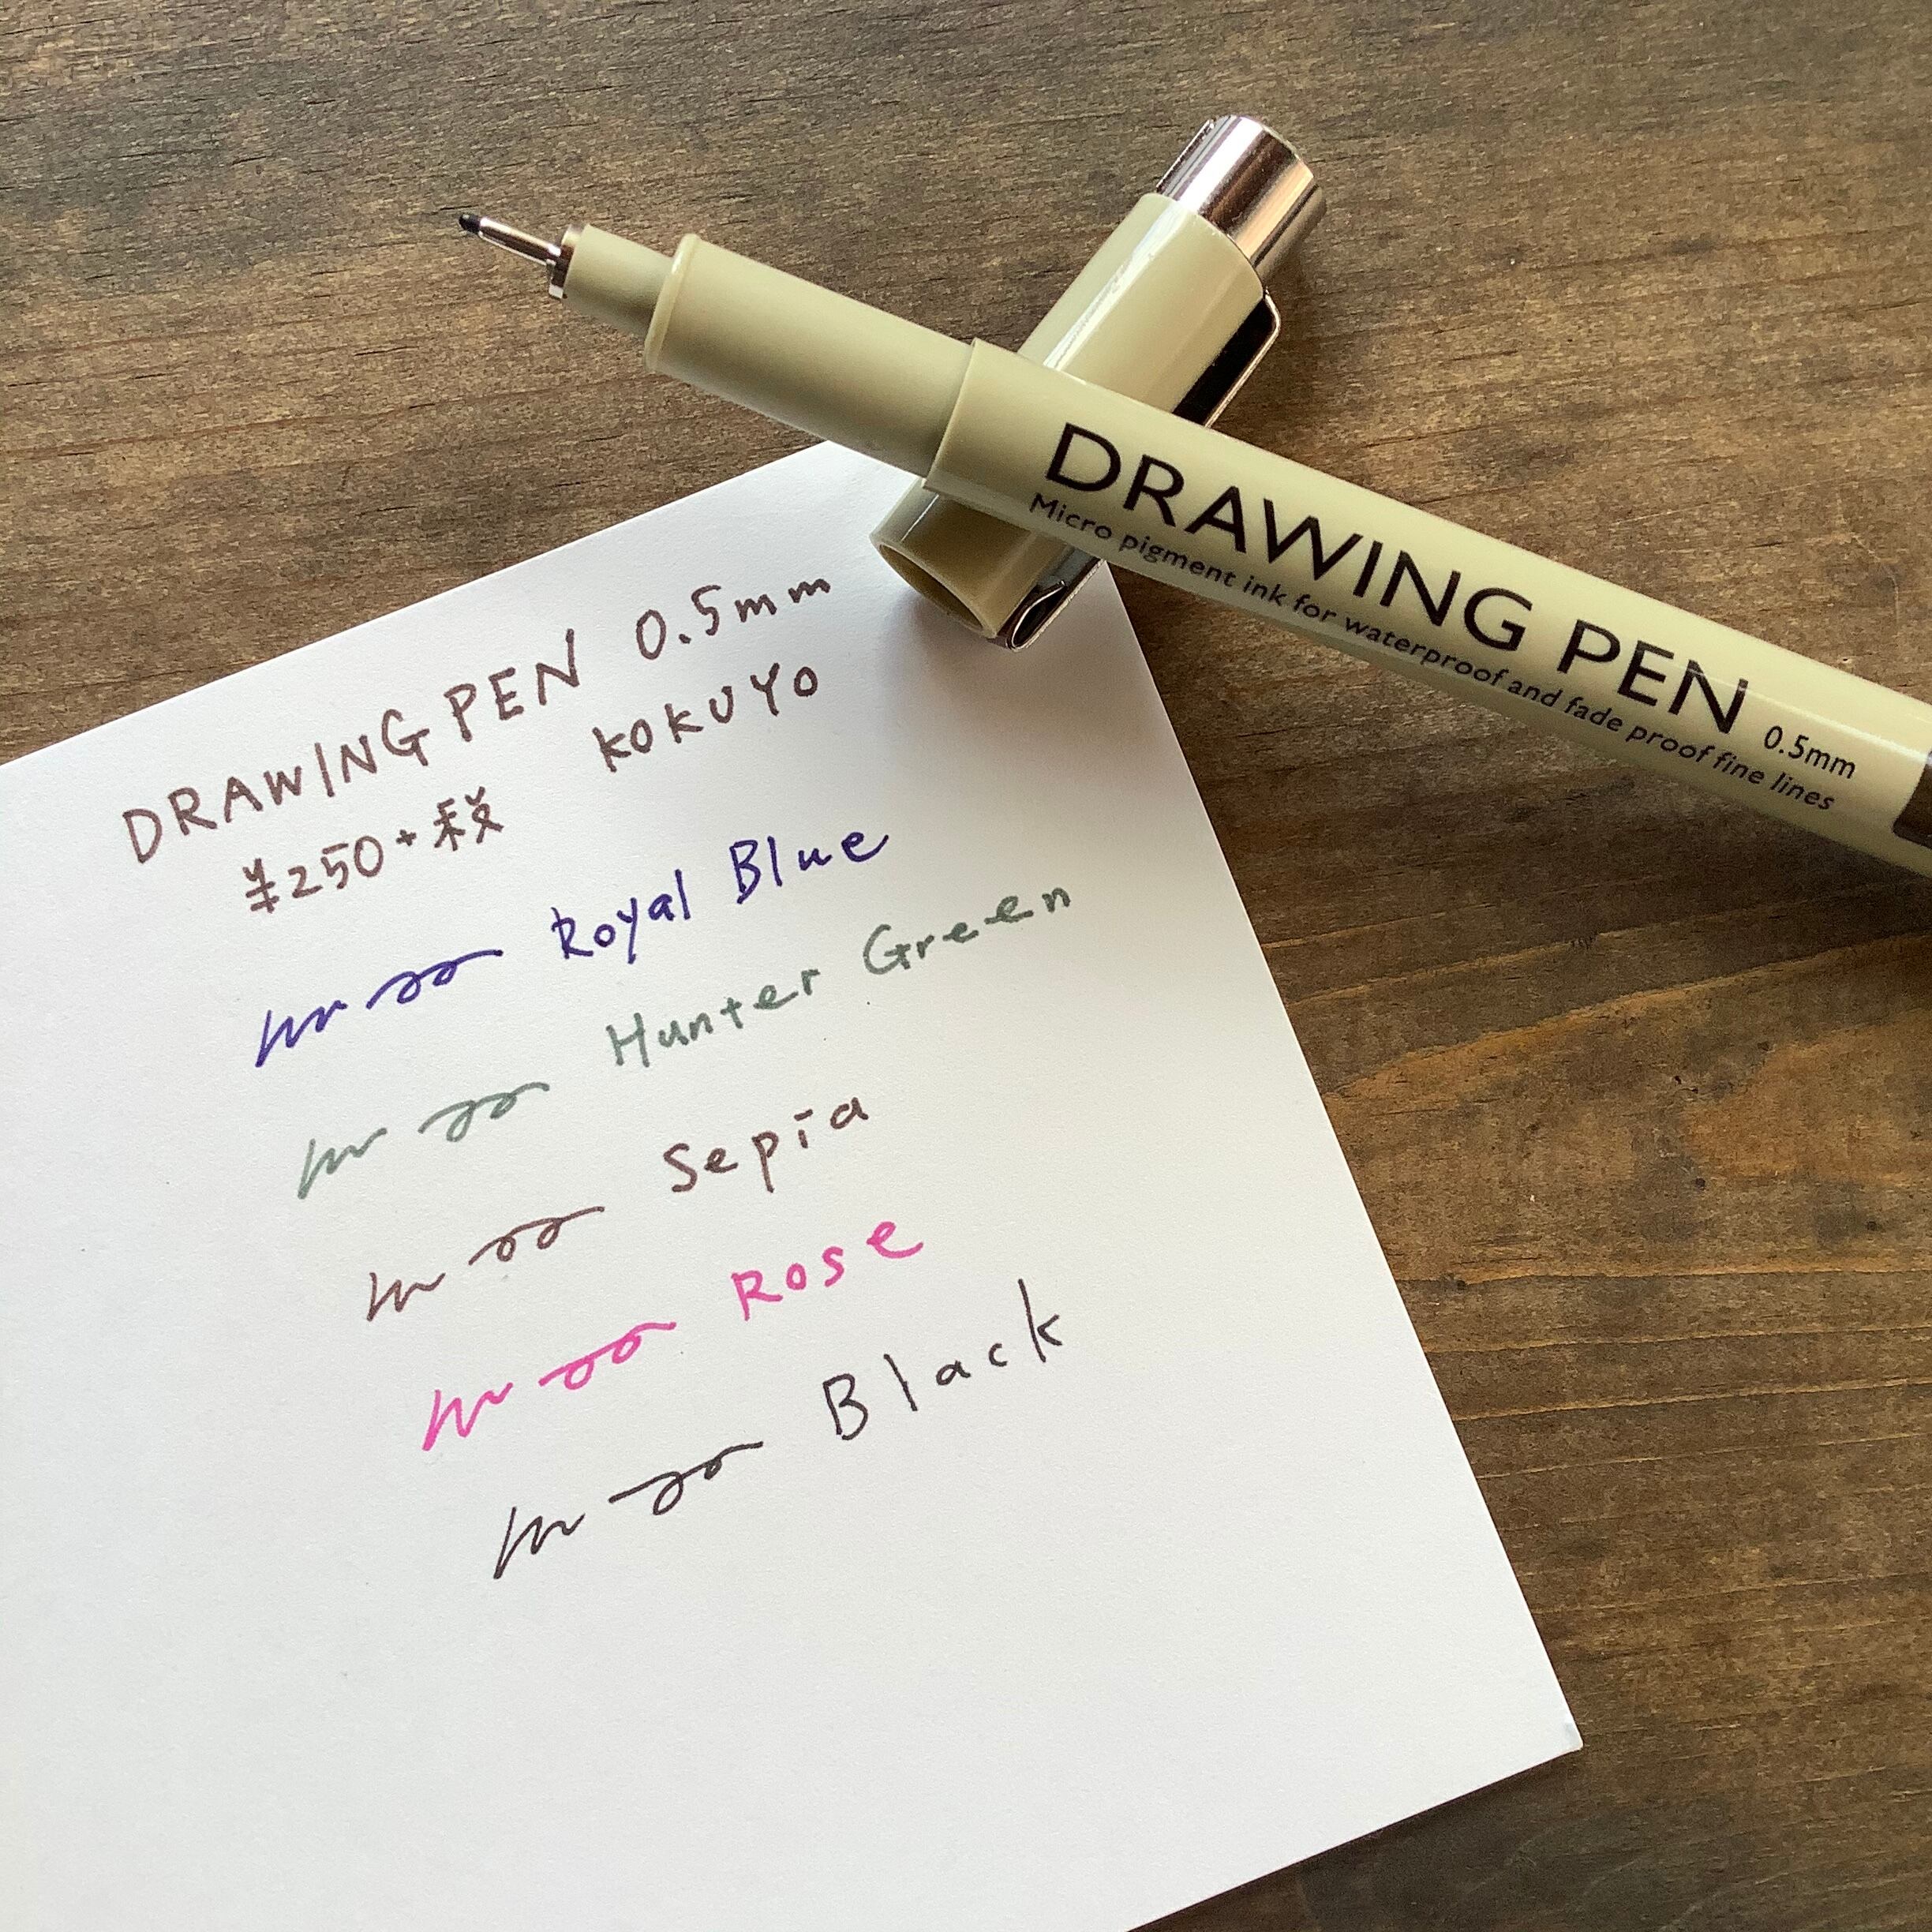 DRAWING PEN 0.5mm
Micro pigment ink for waterproof and fade proof fine lines
DRAWING PEN 0.5mm
KOKUYO
¥250+税
Royal Blue
Hunter Green
Sepia
Rose
Black